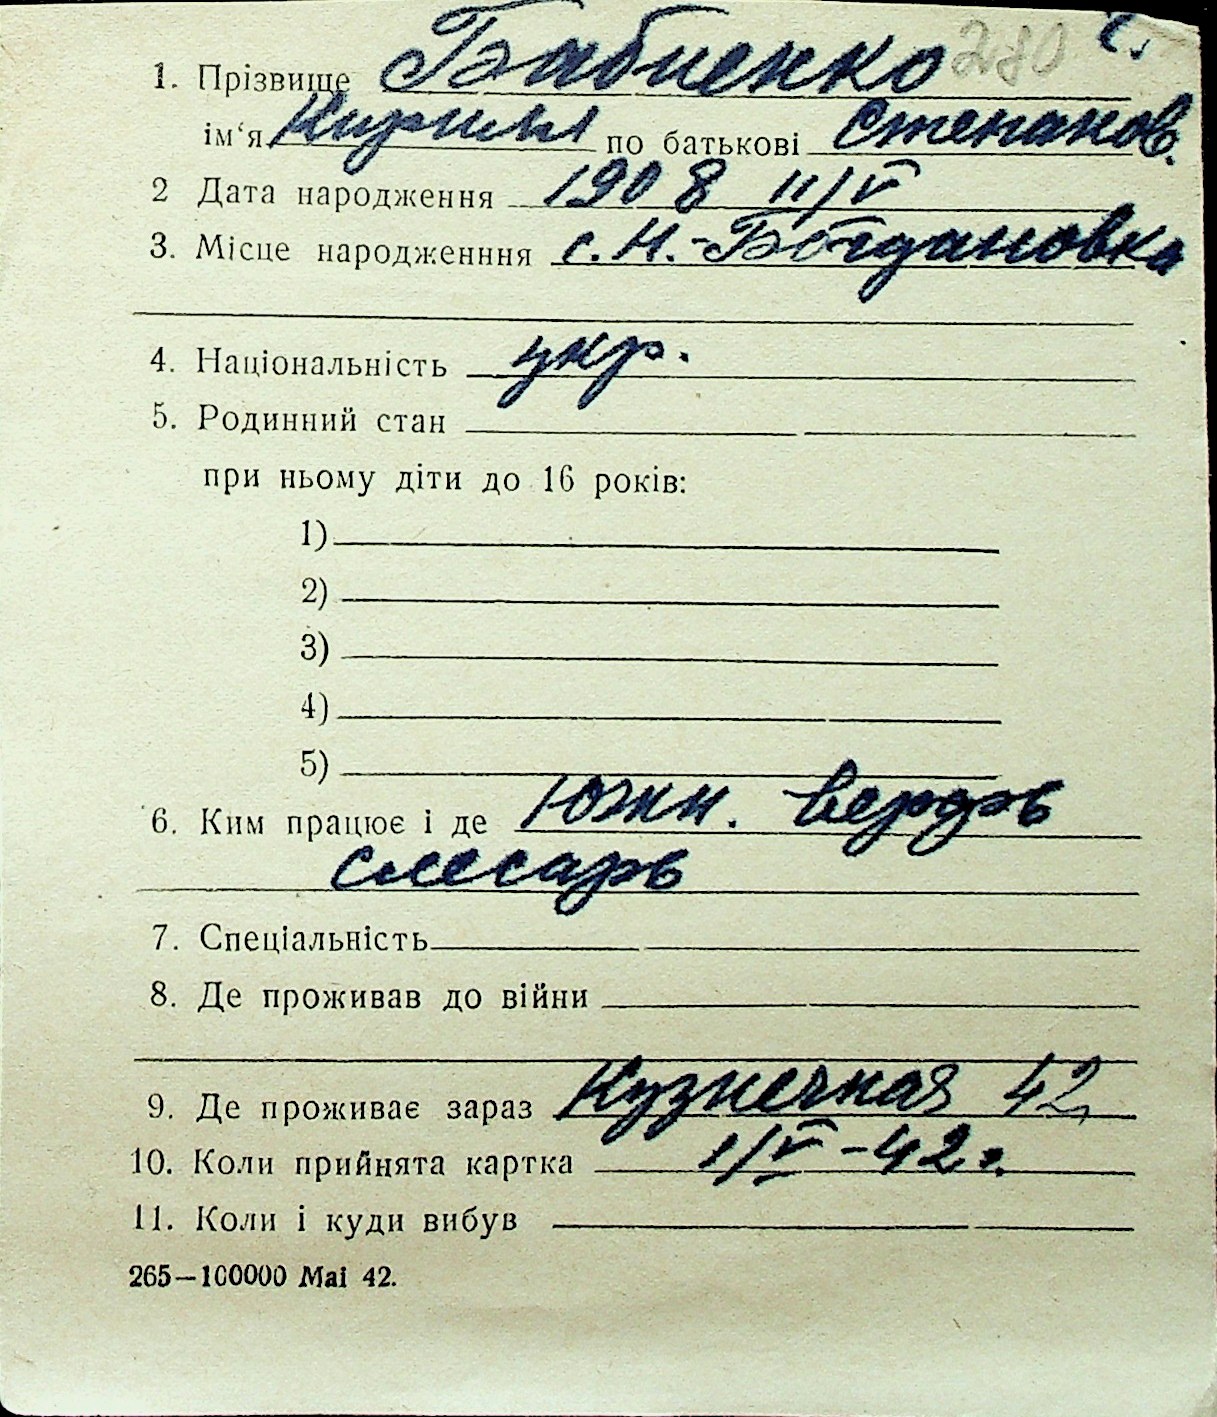 280 с.
1. Прізвище Бабиенко
ім‘я Кирилл по батькові Степанов.
2 Дата народження 1908 11/V
3. Місце народженння с. Н.-Богдановка
4. Національність укр.
5. Родинний стан
при ньому діти до 16 років:
1)
2)
3)
4)
5)
6. Ким працює і де Южн. верфь
слесарь
7. Спеціальність
8. Де проживав до війни
9. Де проживає зараз Кузнечная 42
10. Коли прийнята картка 1/V-42г.
11. Коли і куди вибув
265—100000 Mai 42.